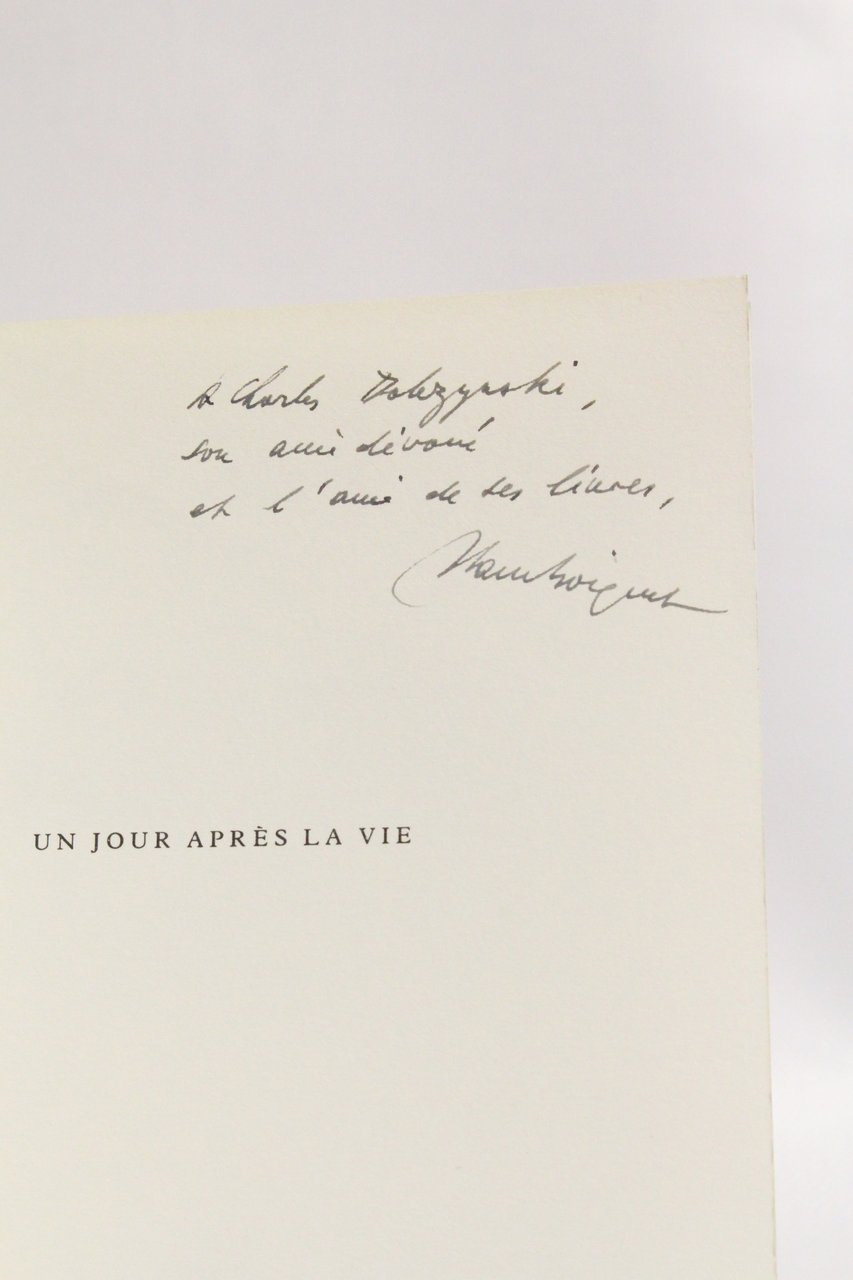 A Charles Dobzynski,
son ami dévoué
et l'ami de ses livres,
Alain Bosquet
UN JOUR APRÈS LA VIE